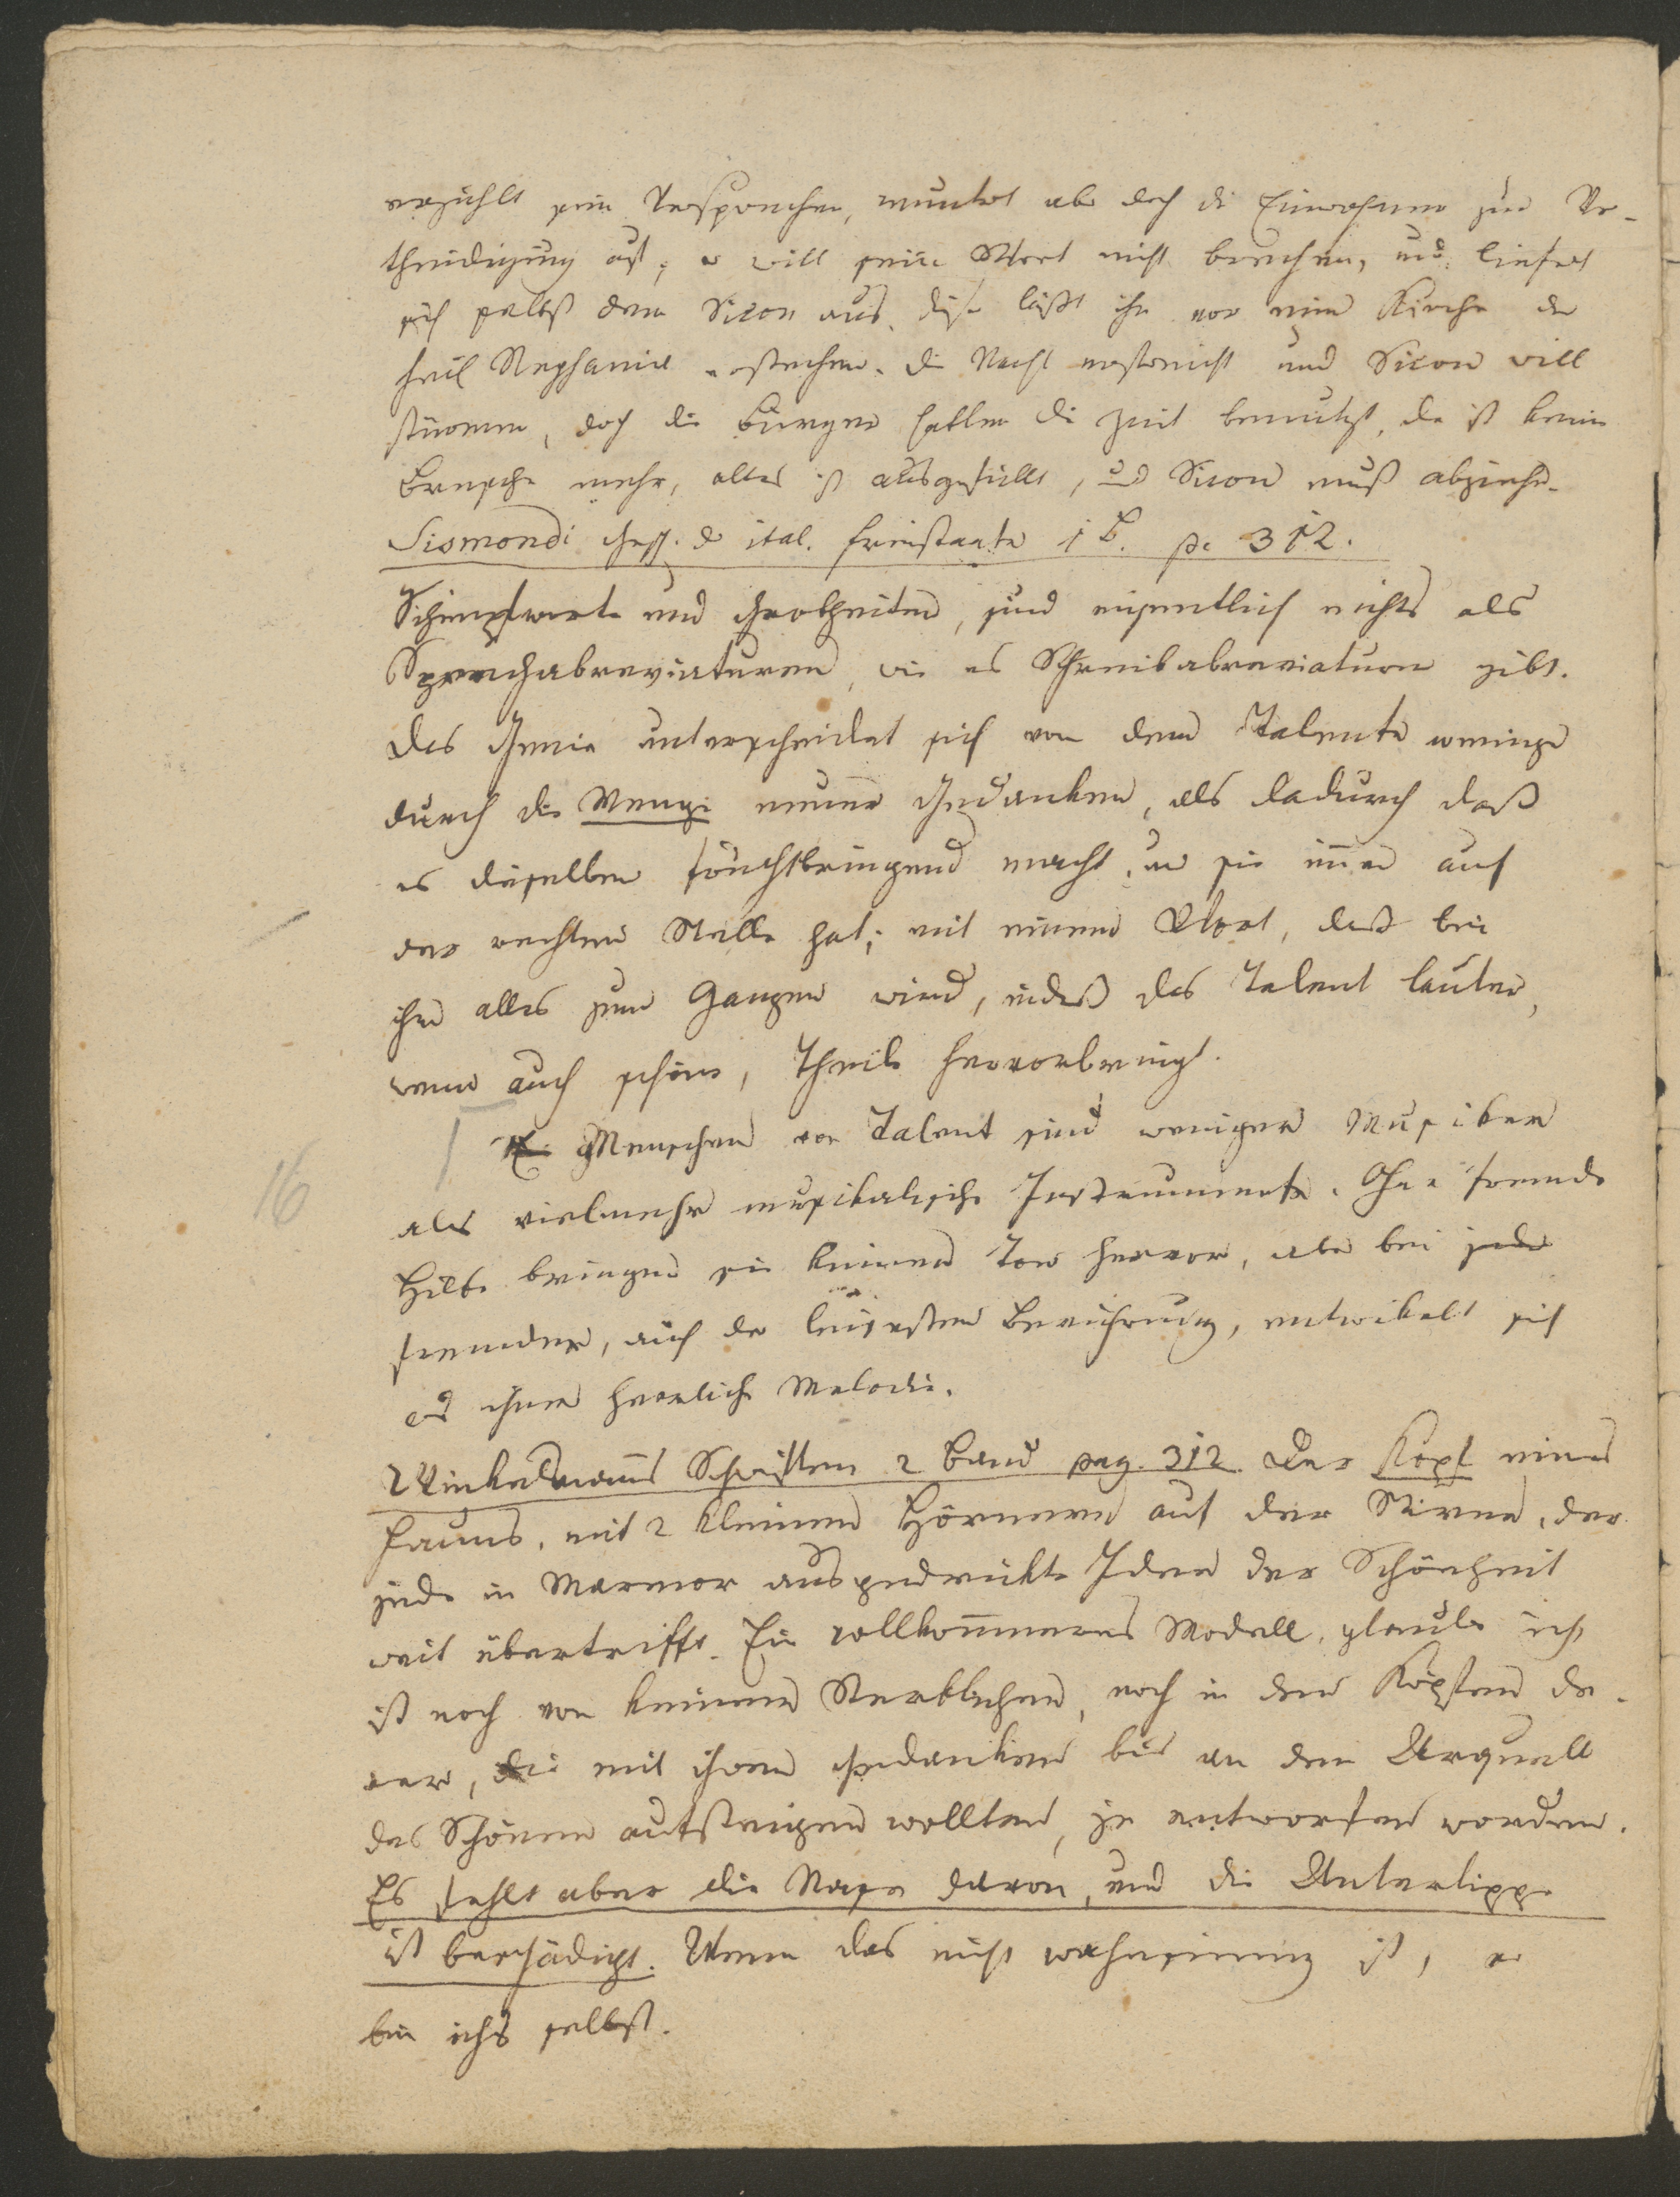 erzählt sein Versprechen, muntert aber doch die Einwohner zur Ver-
theidigung auf; er will sein Wort nicht brechen, und liefert
sich selbst dem Sicon aus. dieser läßt ihn vor einer Kirche der
heil Stephania erstechen. die Nacht verstreicht und Sicon will
stürmen, doch die Bürger hatten die Zeit benützt, da ist keine
Bresche mehr, alles ist ausgefüllt, und Sicon muß abziehen.
Sismondi Gesch. d ital. Freistaaten 1 B. p. 312.
Schimpfworte und Grobheiten, sind eigentlich nichts als
Sprechabreviaturen, wie es Schreibabreviaturen gibt.
Das Genie unterscheidet sich von dem Talente weniger
durch die Menge neuer Gedanken, als dadurch daß
es dieselben fruchtbringend macht, und sie immer auf
der rechten Stelle hat; mit einem Wort, daß bei
ihm alles zum Ganzen wird, indeß das Talent lauter,
wenn auch schöne, Theile hervorbringt.
16
Menschen von Talent sind weniger Musiker
als vielmehr musikalische Instrumente. Ohne fremde
Hilfe bringen sie keinen Ton hervor, aber bei jeder
fremden, auch der leisesten Berührung, entwikelt sich
aus ihnen herrliche Melodie.
Winkelmanns Schriften 2 Band pag. 312. Der Kopf eines
Fauns, mit 2 kleinen Hörnern auf der Stirne, der
jede in Marmor ausgedrückte Ideen der Schönheit
weit übertrifft. Ein vollkommeneres Modell, glaube ich,
ist noch von keinem Sterblichen, noch in den Köpfen de-
rer, die mit ihren Gedanken bis an den Urquell
des Schönen aufsteigen wollten, je entworfen worden.
Es fehlt aber die Nase davon, und die Unterlippe
ist beschädigt. Wenn das nicht wahnsinnig ist, so
bin ichs selbst.